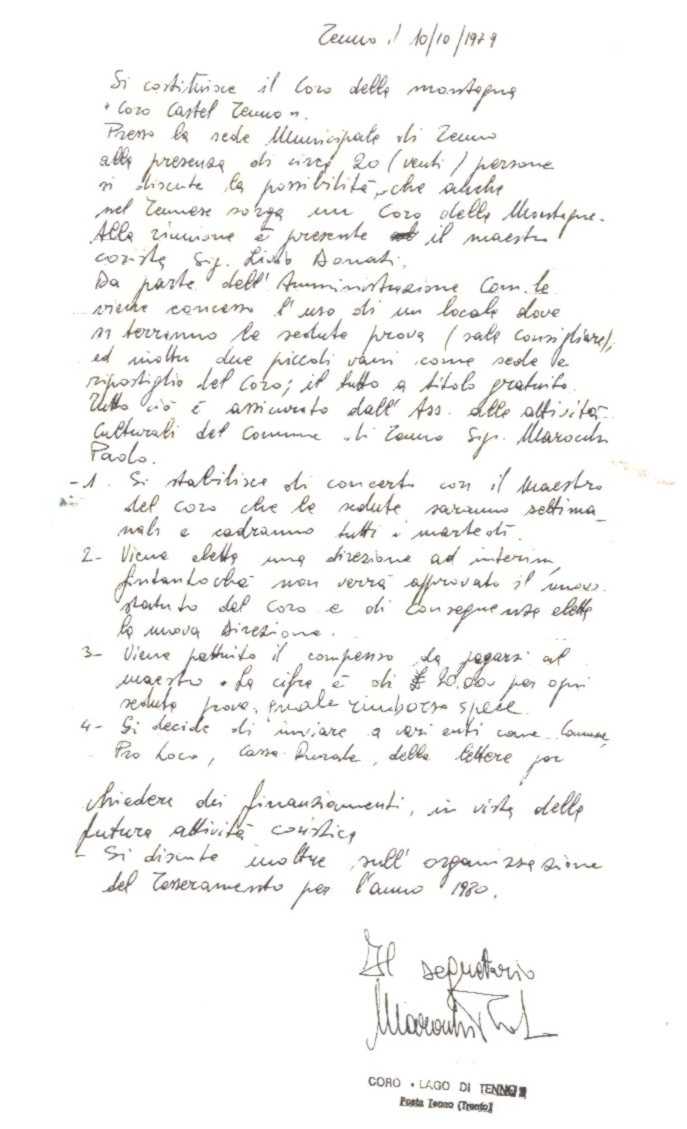 Tenno il 10/10/1979
Si costituisce il Coro della montagna
"Coro Castel Tenno".
Presso la sede Municipale di Tenno
alla presenza di circa 20 (venti) persone
si discute la possibilità, che anche
nel Tennese sorga un Coro della Montagna.
Alla riunione è presente il maestro
corista Sig. Livio Donati.
Da parte dell'Amministrazione Com.le
viene concesso l'uso di un locale dove
si terranno le sedute prova (sala consigliare),
ed inoltre due piccoli vani come sede e
ripostiglio del Coro; il tutto a titolo gratuito.
Tutto ciò è assicurato dall'Ass. alle attività
Culturali del Comune di Tenno Sig. Marocchi
Paolo.
-1. Si stabilisce di concerto con il Maestro
del coro che le sedute saranno settima-
nali e cadranno tutti i martedì.
2- Viene eletta una direzione ad interim,
fintantochè non verrà approvato il nuovo
statuto del Coro e di conseguenza eletta
la nuova Direzione.
3- Viene pattuito il compenso da pagarsi al
maestro. La cifra è di £ 20.000 per ogni
seduta prova, quale rimborso spese.
4- Si decide di inviare a vari enti come Comune,
Pro Loco, Cassa Rurale, delle lettere per
chiedere dei finanziamenti, in vista della
futura attività coristica
- Si discute inoltre sull'organizzazione
del Tesseramento per l'anno 1980.
Il segretario
CORO "LAGO DI TENNO"
Posta Tenno (Trento)